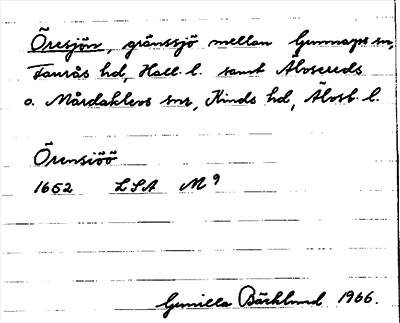 Öresjön, gränssjö mellan Gunnarps sn,
Faurås hd, Hall. l. samt Älvsereds
o. Mårdaklevs snr, Kinds hd, Älvsb. l.
Örensiöö
1652 LSA M 9
Gunilla Bäcklund 1966.